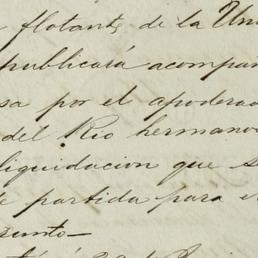 flotante de la Un
publicará acompañ
sa por el apodera
del Rio hermano
liquidacion que s
partida para e
sunto—